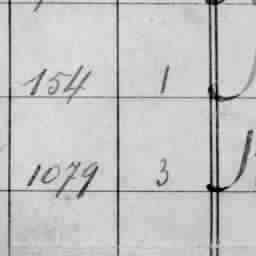 154 1
1079 3